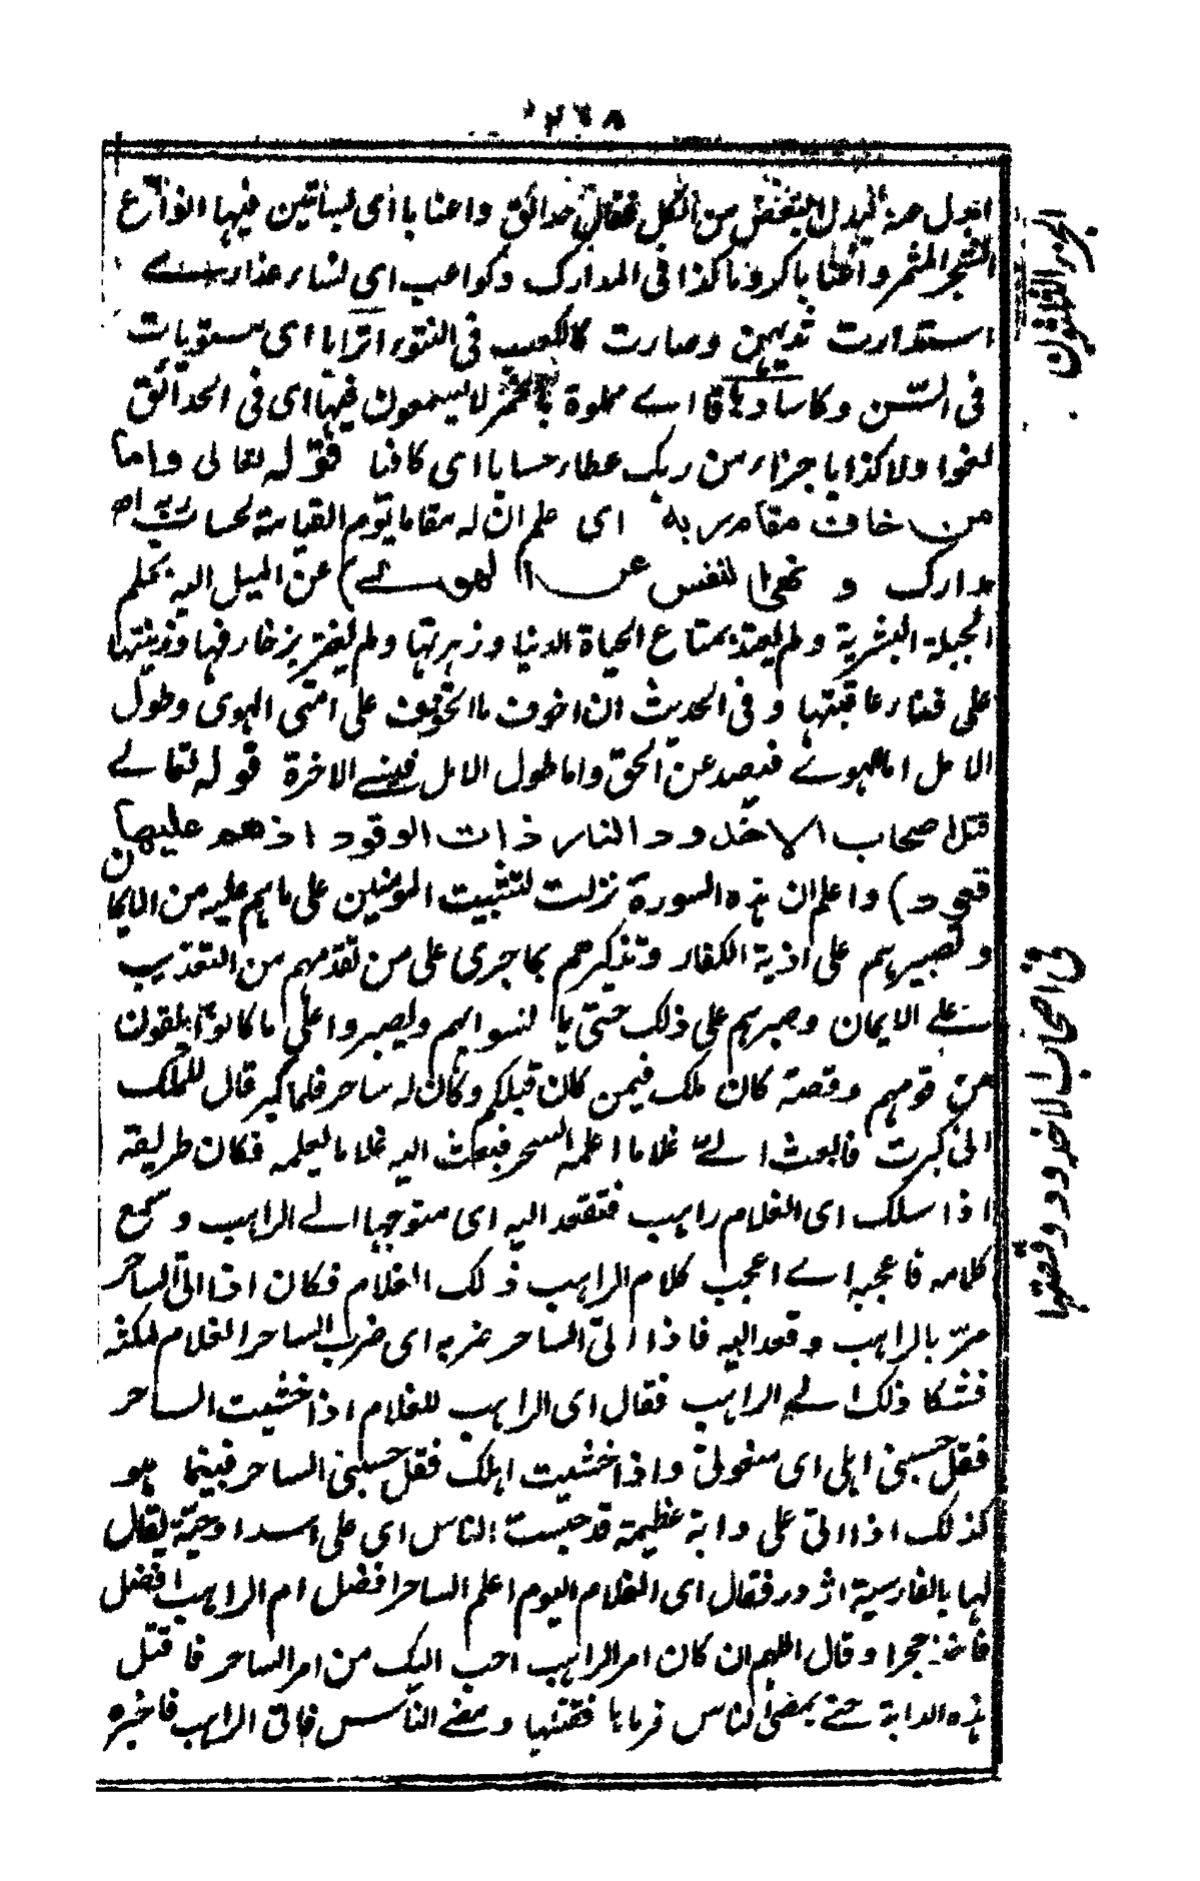 ٢٦٨
ابدل منه البدل البعض من الكل فقال حدائق واعنابا اى بساتين فيها انواع
الشجر المثمر واعنابا كروما كذا فى المدارك وكواعب اى نساء عذارے
استدارت ثديهن وصارت كالكعب فى النتوء اترابا اى مستويات
فى السن وكاسا دهاقا اے مملوة بالخمر لا يسمعون فيها اى فى الحدائق
لغوا ولا كذابا جزاء من ربك عطاء حسابا اى كافيا قوله تعالى واما
من خاف مقام ربه اى علم ان له مقاما يوم القيامة لحساب ربه اھ
مدارك و نهى النفس عن الهوے) عن الميل اليه بحكم
الجبلة البشرية ولم يعتد بمتاع الحياة الدنيا وزهرتها ولم يغتر بزخارفها وزينتها
على فناء عاقبتها و فى الحديث ان اخوف ما اتخوف على امتى الهوى وطول
الامل اما الهوے فيصد عن الحق واما طول الامل فينسے الاخرة قوله تعالے
قتل اصحاب الاخدود النار ذات الوقود اذ هم عليها
قعود) واعلم ان هذه السورة نزلت لتثبيت المؤمنين على ما هم عليه من الايمان
وتصبيرهم على اذية الكفار وتذكيرهم بما جرى على من تقدمهم من التعذيب
علے الايمان وصبرهم على ذلك حتى يا نسوا بهم ويصبروا على ما كانوا يلقون
من قومهم وقصته كان ملك فيمن كان قبلكم وكان له ساحر فلما كبر قال للملك
انى كبرت فابعث الےّ غلاما اعلمه السحر فبعث اليه غلاما يعلمه فكان طريقه
اذا سلك اى الغلام راهب فقعد اليه اى متوجها الے الراهب وسمع
كلامه فاعجبه اے اعجب كلام الراهب ذلك الغلام فكان اذا اتى الساحر
مرّ بالراهب وقعد اليه فاذا اتى الساحر ضربه اى ضرب الساحر الغلام لمكثه
فشكا ذلك الے الراهب فقال اى الراهب للغلام اذا خشيت الساحر
فقل حبسنى اهلى اى شغولى واذا خشيت اهلك فقل حبسنى الساحر فبينما هو
كذلك اذا اتى على دابة عظيمة قد حبست الناس اى على اسد او حية يقال
لها بالفارسية اژدر فقال اى الغلام اليوم اعلم الساحر افضل ام الراهب افضل
فاخذ حجرا وقال اللهم ان كان امر الراهب احب اليك من امر الساحر فاقتل
هذه الدابة حتے يمضى الناس فرماها فقتلها ومضے الناس فاتى الراهب فاخبره
الجزء الثلثون
فى اصحاب الاخدود وقصتها